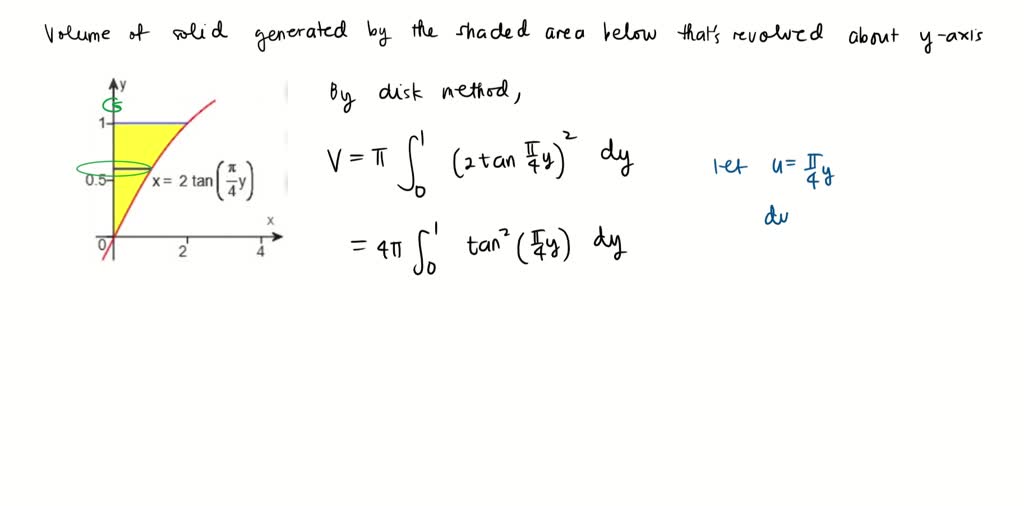 Volume of solid generated by the shaded area below that's revolved about y-axis
y
1
0.5
x = 2 tan(π/4 y)
x
0
2
4
By disk method,
V = π ∫₀¹ (2 tan π/4 y)² dy
= 4π ∫₀¹ tan² (π/4 y) dy
let u = π/4 y
du